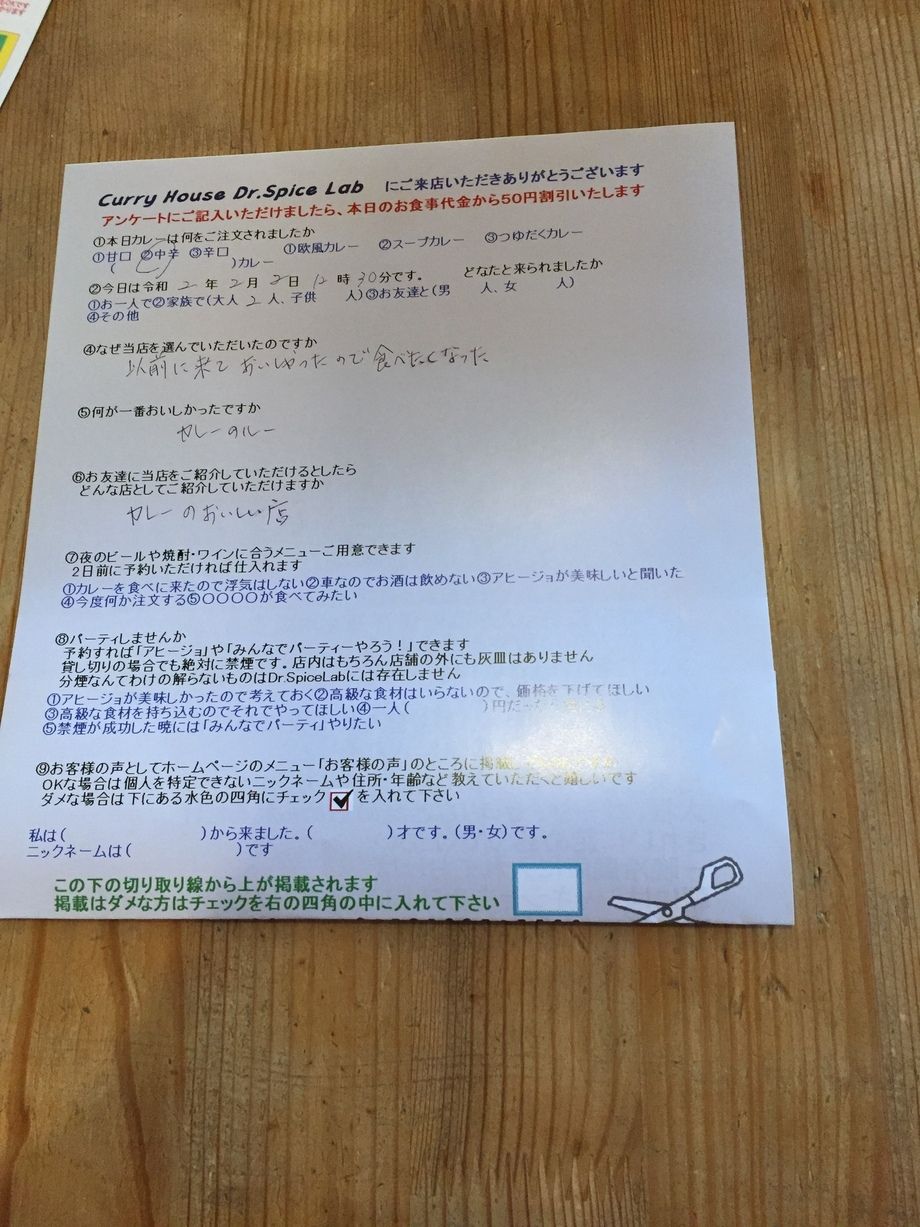 Curry House Dr.Spice Lab にご来店いただきありがとうございます
アンケートにご記入いただけましたら、本日のお食事代金から50円割引いたします
①本日カレーは何をご注文されましたか
①甘口 ②中辛 ③辛口 ①欧風カレー ②スープカレー ③つゆだくカレー
( )カレー
②今日は令和 2 年 2 月 2 日 12 時 30 分です。 どなたと来られましたか
①お一人で②家族で(大人 2 人、子供 人)③お友達と(男 人、女 人)
④その他
④なぜ当店を選んでいただいたのですか
以前に来て おいしかったので 食べたくなった
⑤何が一番おいしかったですか
カレーのルー
⑥お友達に当店をご紹介していただけるとしたら
どんな店としてご紹介していただけますか
カレーのおいしい店
⑦夜のビールや焼酎・ワインに合うメニューご用意できます
2日前に予約いただければ仕入れます
①カレーを食べに来たので浮気はしない②車なのでお酒は飲めない③アヒージョが美味しいと聞いた
④今度何か注文する⑤〇〇〇〇が食べてみたい
⑧パーティしませんか
予約すれば「アヒージョ」や「みんなでパーティーやろう!」できます
貸し切りの場合でも絶対に禁煙です。店内はもちろん店舗の外にも灰皿はありません
分煙なんてわけの解らないものはDr.SpiceLabには存在しません
①アヒージョが美味しかったので考えておく②高級な食材はいらないので、価格を下げてほしい
③高級な食材を持ち込むのでそれでやってほしい④一人( )円だったら
⑤禁煙が成功した暁には「みんなでパーティ」やりたい
⑨お客様の声としてホームページのメニュー「お客様の声」のところに掲載
OKな場合は個人を特定できないニックネームや住所・年齢など教えていただくと嬉しいです
ダメな場合は下にある水色の四角にチェック を入れて下さい
私は( )から来ました。( )才です。(男・女)です。
ニックネームは( )です
この下の切り取り線から上が掲載されます
掲載はダメな方はチェックを右の四角の中に入れて下さい